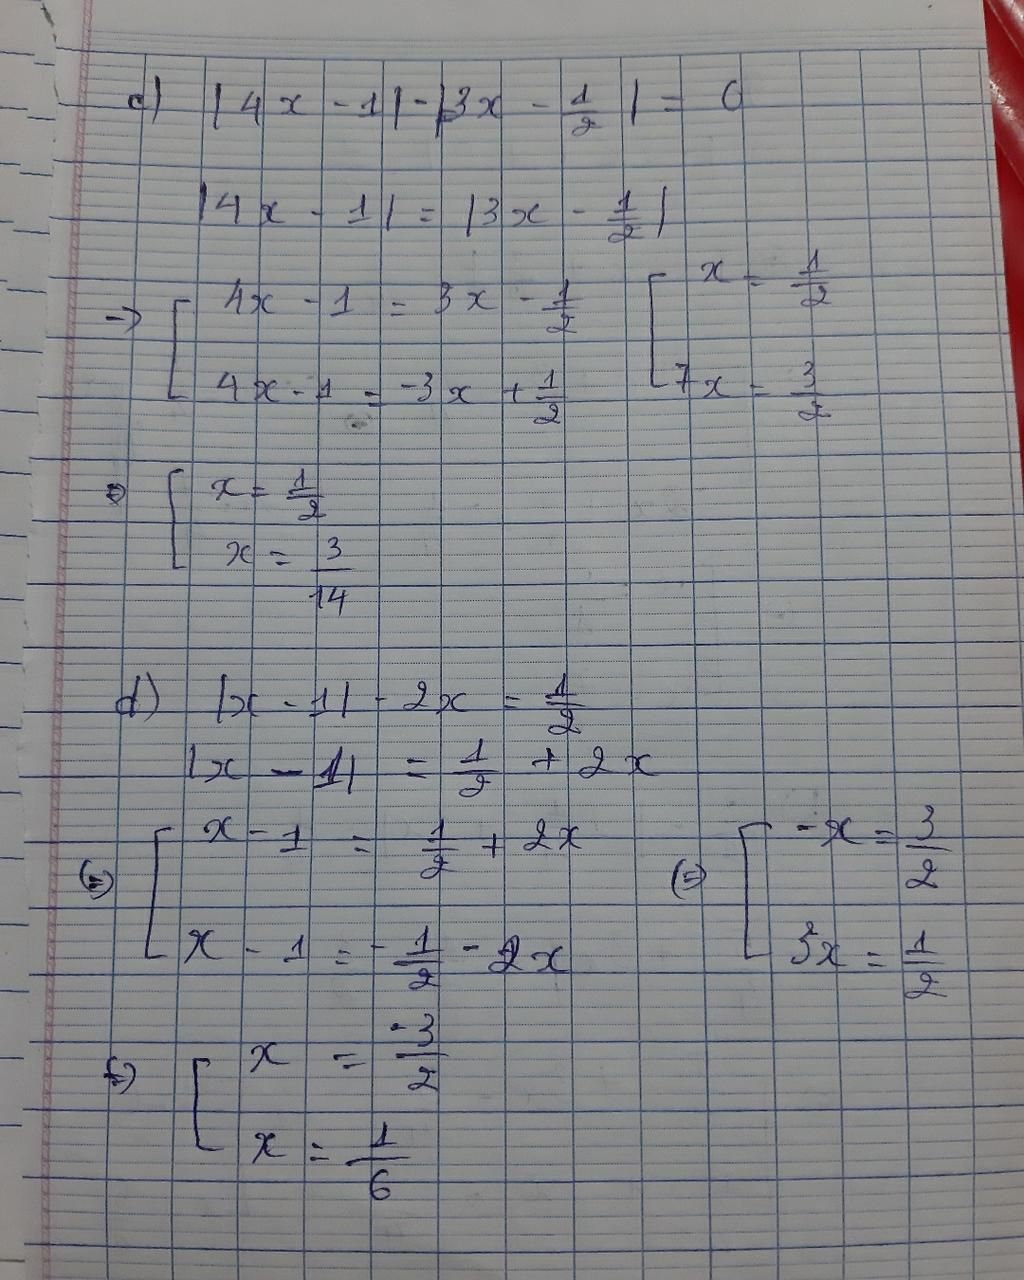 c) |4x - 1| - |3x - 1/2| = 0
|4x - 1| = |3x - 1/2|
→ [ 4x - 1 = 3x - 1/2 [ x = 1/2
4x - 1 = -3x + 1/2 7x = 3/2
⇔ [ x = 1/2
x = 3/14
d) |x - 1| - 2x = 1/2
|x - 1| = 1/2 + 2x
⇔ [ x - 1 = 1/2 + 2x ⇔ [ -x = 3/2
x - 1 = -1/2 - 2x 3x = 1/2
⇔ [ x = -3/2
x = 1/6